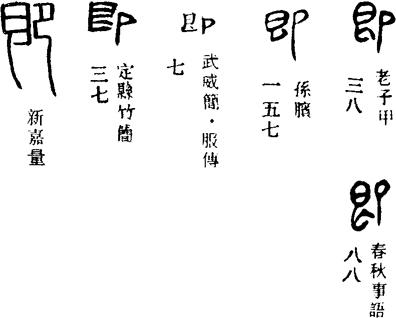 即
老子甲
三八
即
春秋事語
八八
即
孫臏
一五七
即
武威簡·服傳
七
即
定縣竹簡
三七
即
新嘉量